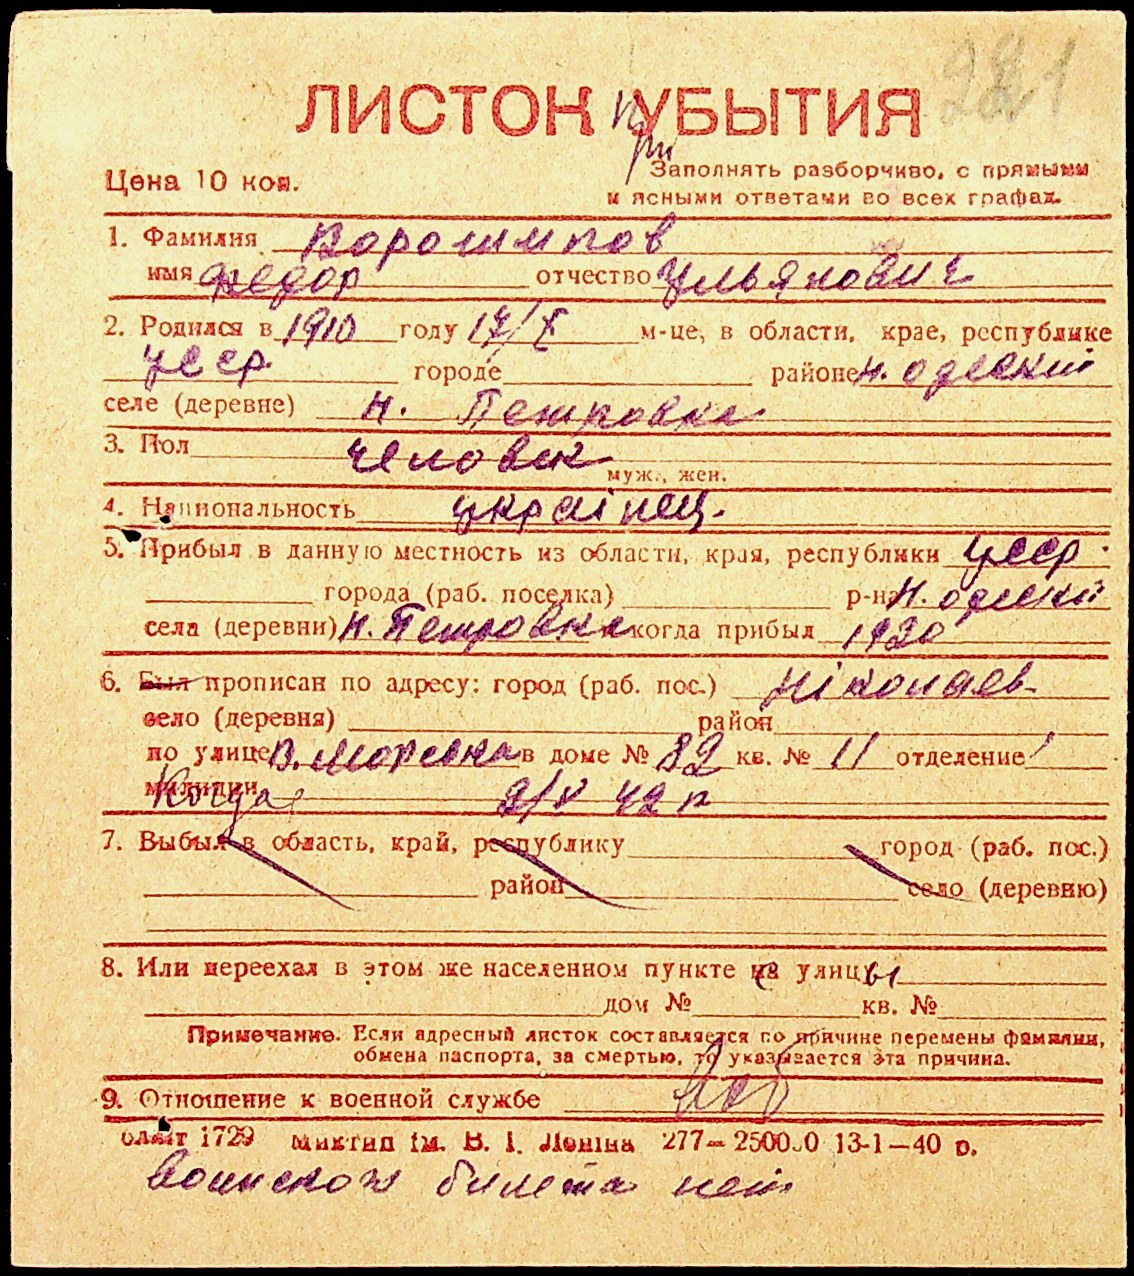 221
ЛИСТОК УБЫТИЯ
При
Цена 10 коп.
Заполнять разборчиво, с прямыми
и ясными ответами во всех графах.
1. Фамилия Ворошилов
имя Федор отчество Ульянович
2. Родился в 1910 году 17/X м-це, в области, крае, республике
УССР городе районе Н. Одеский
селе (деревне) Н. Петровка
3. Пол человек
муж., жен.
4. Национальность украінец.
5. Прибыл в данную местность из области, края, республики УССР.
города (раб. поселка) р-на Н. Одеский
села (деревни) Н. Петровка когда прибыл 1930
6. Был прописан по адресу: город (раб. пос.) Ніколаев
село (деревня) район
по улице В. Морская в доме № 82 кв. № 11 отделение 1
милиции Когда 2/V 42 г
7. Выбыл в область, край, республику город (раб. пос.)
район село (деревню)
8. Или переехал в этом же населенном пункте с улицы
дом № кв. №
Примечание. Если адресный листок составляется по причине перемены фамилии,
обмена паспорта, за смертью, то указывается эта причина.
9. Отношение к военной службе
1729 ім. В. І. Леніна 277— 13-1—40 р.
воинского билета нет